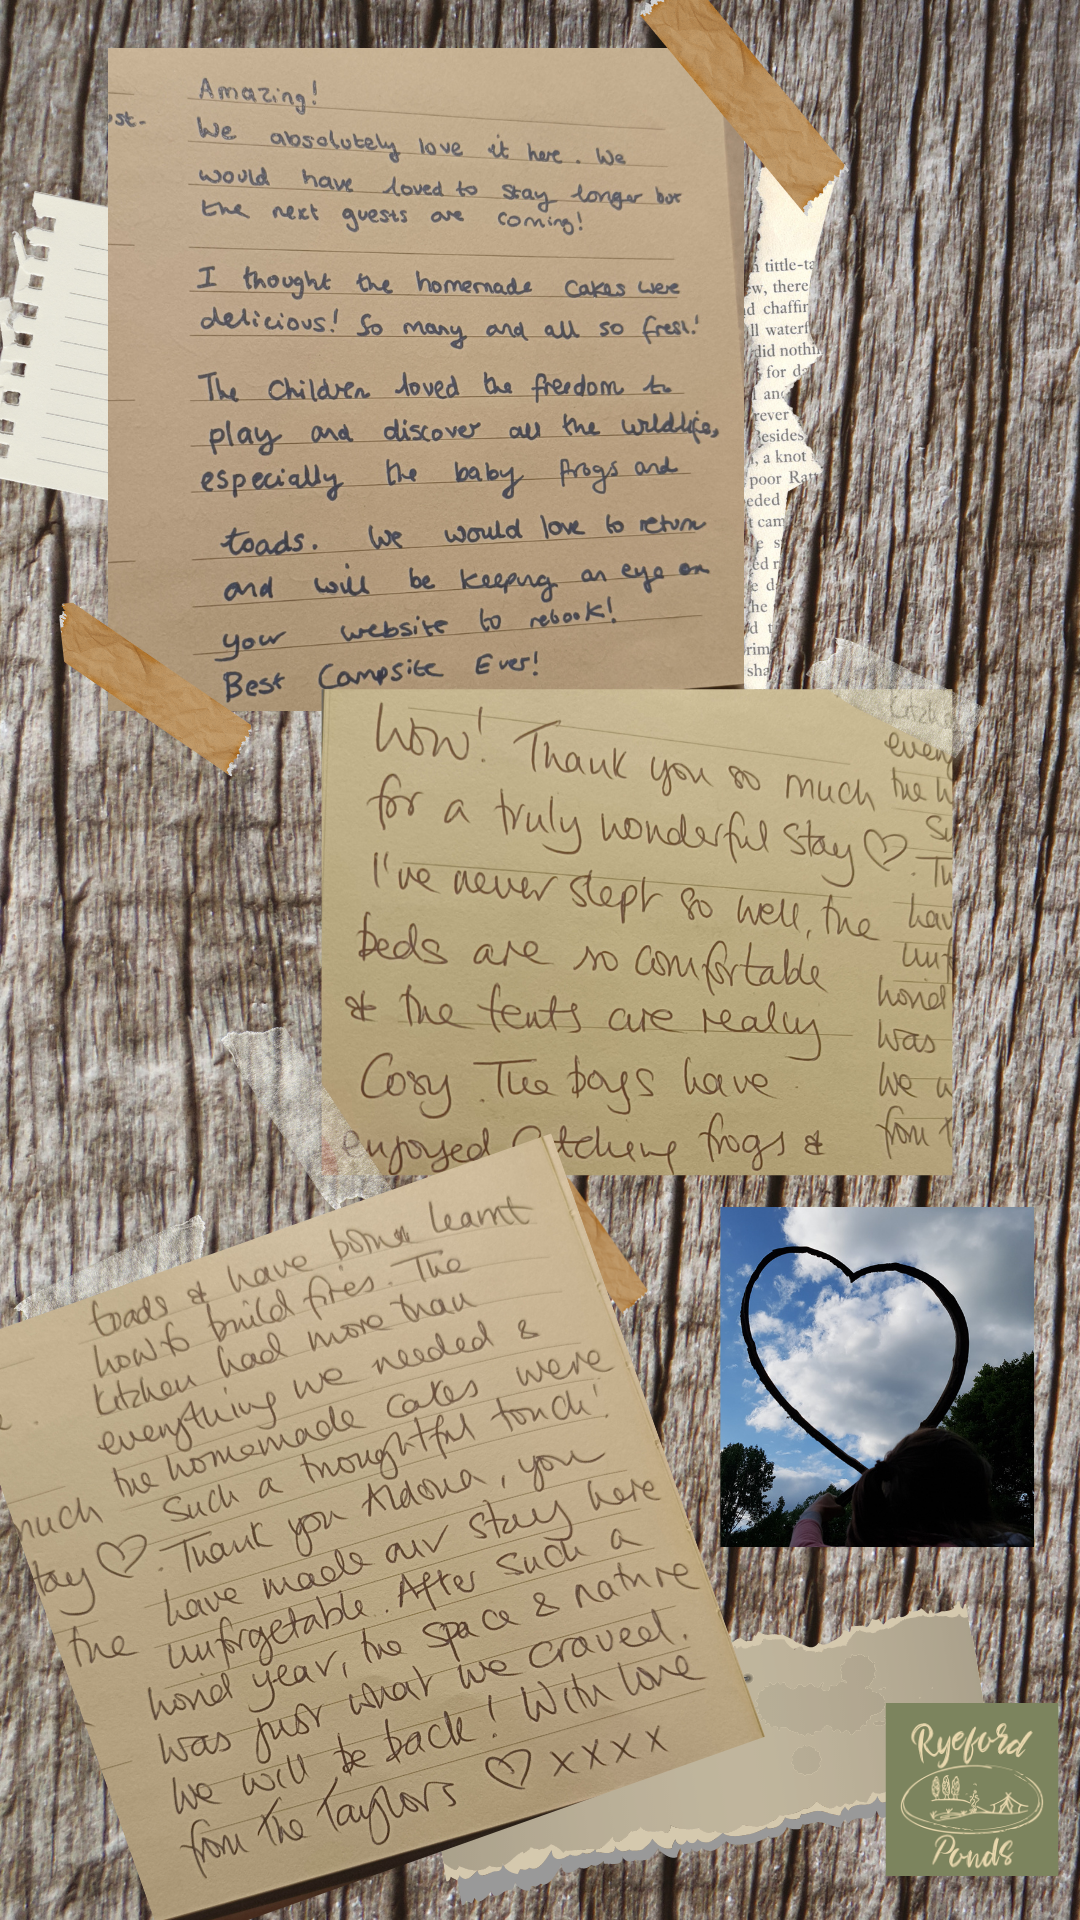 Amazing!
st.
We absolutely love it here. We
would have loved to stay longer but
the next guests are coming!
I thought the homemade cakes were
delicious! So many and all so fresh!
The Children loved the freedom to
play and discover all the wildlife,
especially the baby frogs and
toads. We would love to return
and will be keeping an eye on
your website to rebook!
Best Campsite Ever!
tittle-ta
ew, there
d chaffin
ll waterf
did nothi
for da
and
rever
Besides
, a knot
poor Rat
eded
t cam
ed
he
rim
sha
Wow! Thank you so much
for a truly wonderful stay ♡.
I've never slept so well, the
beds are so comfortable
& the tents are really
Cosy. The boys have
enjoyed Catching frogs &
kitch
every
the h
Su
Th
hav
unf
horrid
was
We w
from t
toads & have learnt
how to build fires. The
kitchen had more than
everything we needed &
the homemade cakes were
Such a thoughtful touch!
Thank you Aldona, you
have made our stay here
unforgetable. After such a
horrid year, the space & nature
was just what we craved.
We will be back! With love
from The Taylors ♡ xxxx
much
tay ♡.
the
Ryeford
Ponds